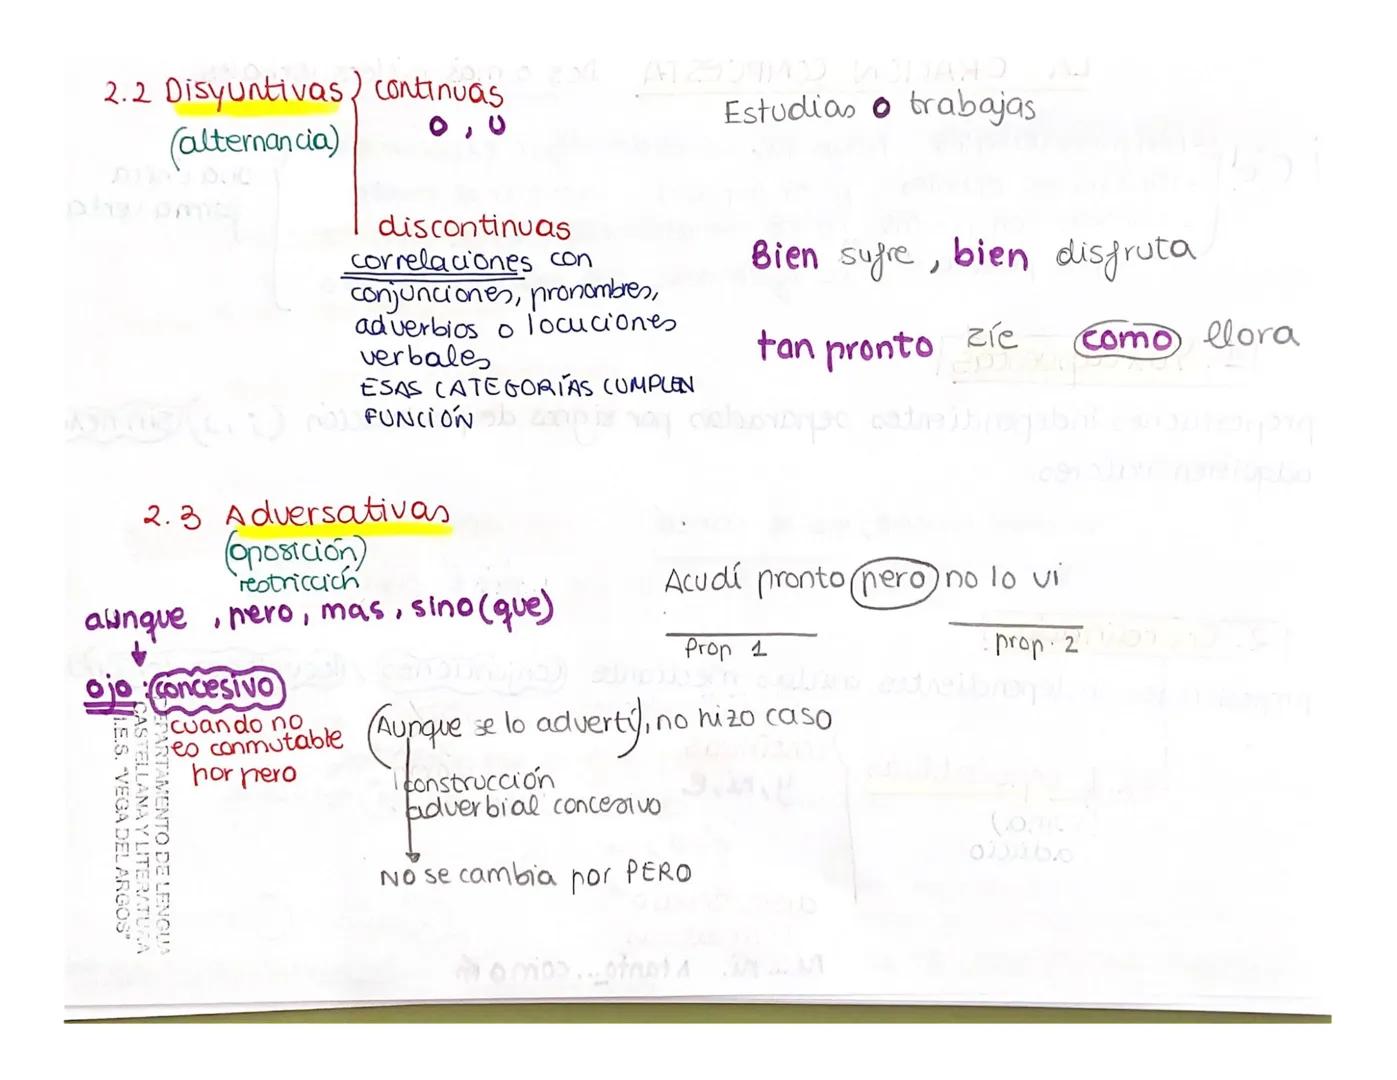 2.2 Disyuntivas } continuas
o, u
(alternancia)
Estudias o trabajas
discontinuas
correlaciones con
conjunciones, pronombres,
adverbios o locuciones
verbales
ESAS CATEGORÍAS CUMPLEN
FUNCIÓN
Bien sufre, bien disfruta
tan pronto ríe como llora
2.3 Adversativas
(oposición)
restricción
aunque, pero, mas, sino (que)
ojo: concesivo
cuando no
es conmutable
por pero
Acudí pronto pero no lo vi
Prop 1
prop. 2
(Aunque se lo advertí), no hizo caso
construcción
adverbial concesivo
NO se cambia por PERO
DEPARTAMENTO DE LENGUA
CASTELLANA Y LITERATURA
I.E.S. "VEGA DEL ARGOS"